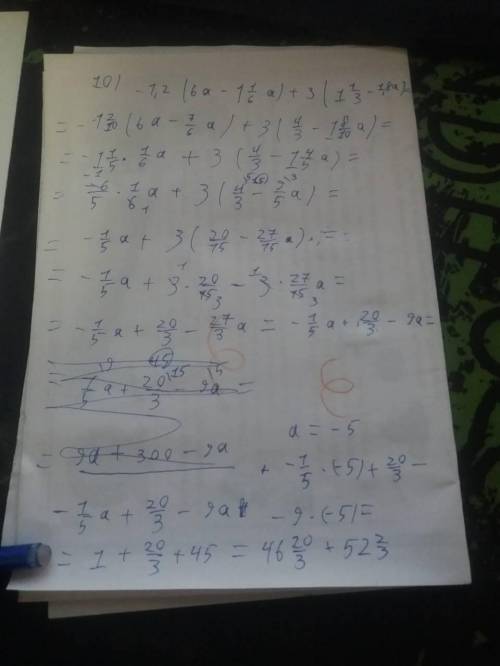 10) -1,2 (6a - 1 1/6 a) + 3 (1 1/3 - 1,8a)
= -1 2/10 (6a - 7/6 a) + 3 (4/3 - 1 8/10 a) =
= -1 1/5 · 1/6 a + 3 (4/3 - 1 4/5 a) =
= -6/5 · 1/6 a + 3 (4/3 - 9/5 a) =
= -1/5 a + 3 (20/15 - 27/15 a) =
= -1/5 a + 3 · 20/15 - 3 · 27/15 a =
= -1/5 a + 20/3 - 27/3 a = -1/5 a + 20/3 - 9a =
a + 20/3 - 9a =
= 9a + 300 - 9a
a = -5
-1/5 · (-5) + 20/3 -
- 9 · (-5) =
-1/5 a + 20/3 - 9a
= 1 + 20/3 + 45 = 46 20/3 + 52 2/3